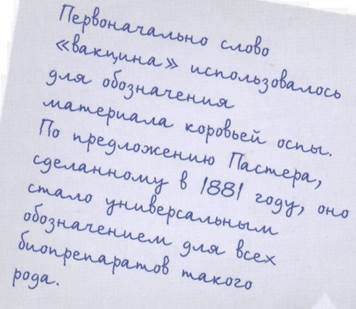 Первоначально слово
«вакцина» использовалось
для обозначения
материала коровьей оспы.
По предложению Пастера,
сделанному в 1881 году, оно
стало универсальным
обозначением для всех
биопрепаратов такого
рода.